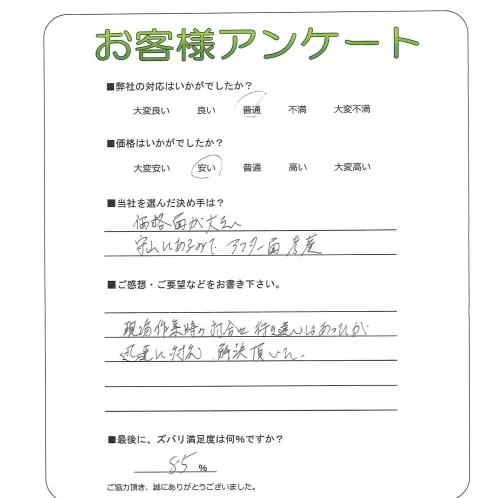 お客様アンケート
■弊社の対応はいかがでしたか?
大変良い 良い 普通 不満 大変不満
■価格はいかがでしたか?
大変安い 安い 普通 高い 大変高い
■当社を選んだ決め手は?
価格面が大きい
守山にあるので アフター面考慮
■ご感想・ご要望などをお書き下さい。
現場作業時の打合せ 行き違いはあったが
迅速に対応、解決頂いた。
■最後に、ズバリ満足度は何%ですか?
85 %
ご協力頂き、誠にありがとうございました。